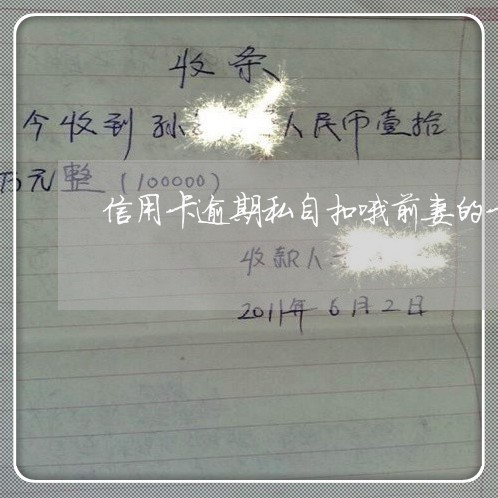 收条
今收到孙 人民币壹拾
万元整(100000)
信用卡逾期私自扣哦前妻的
收款人
2011年6月2日